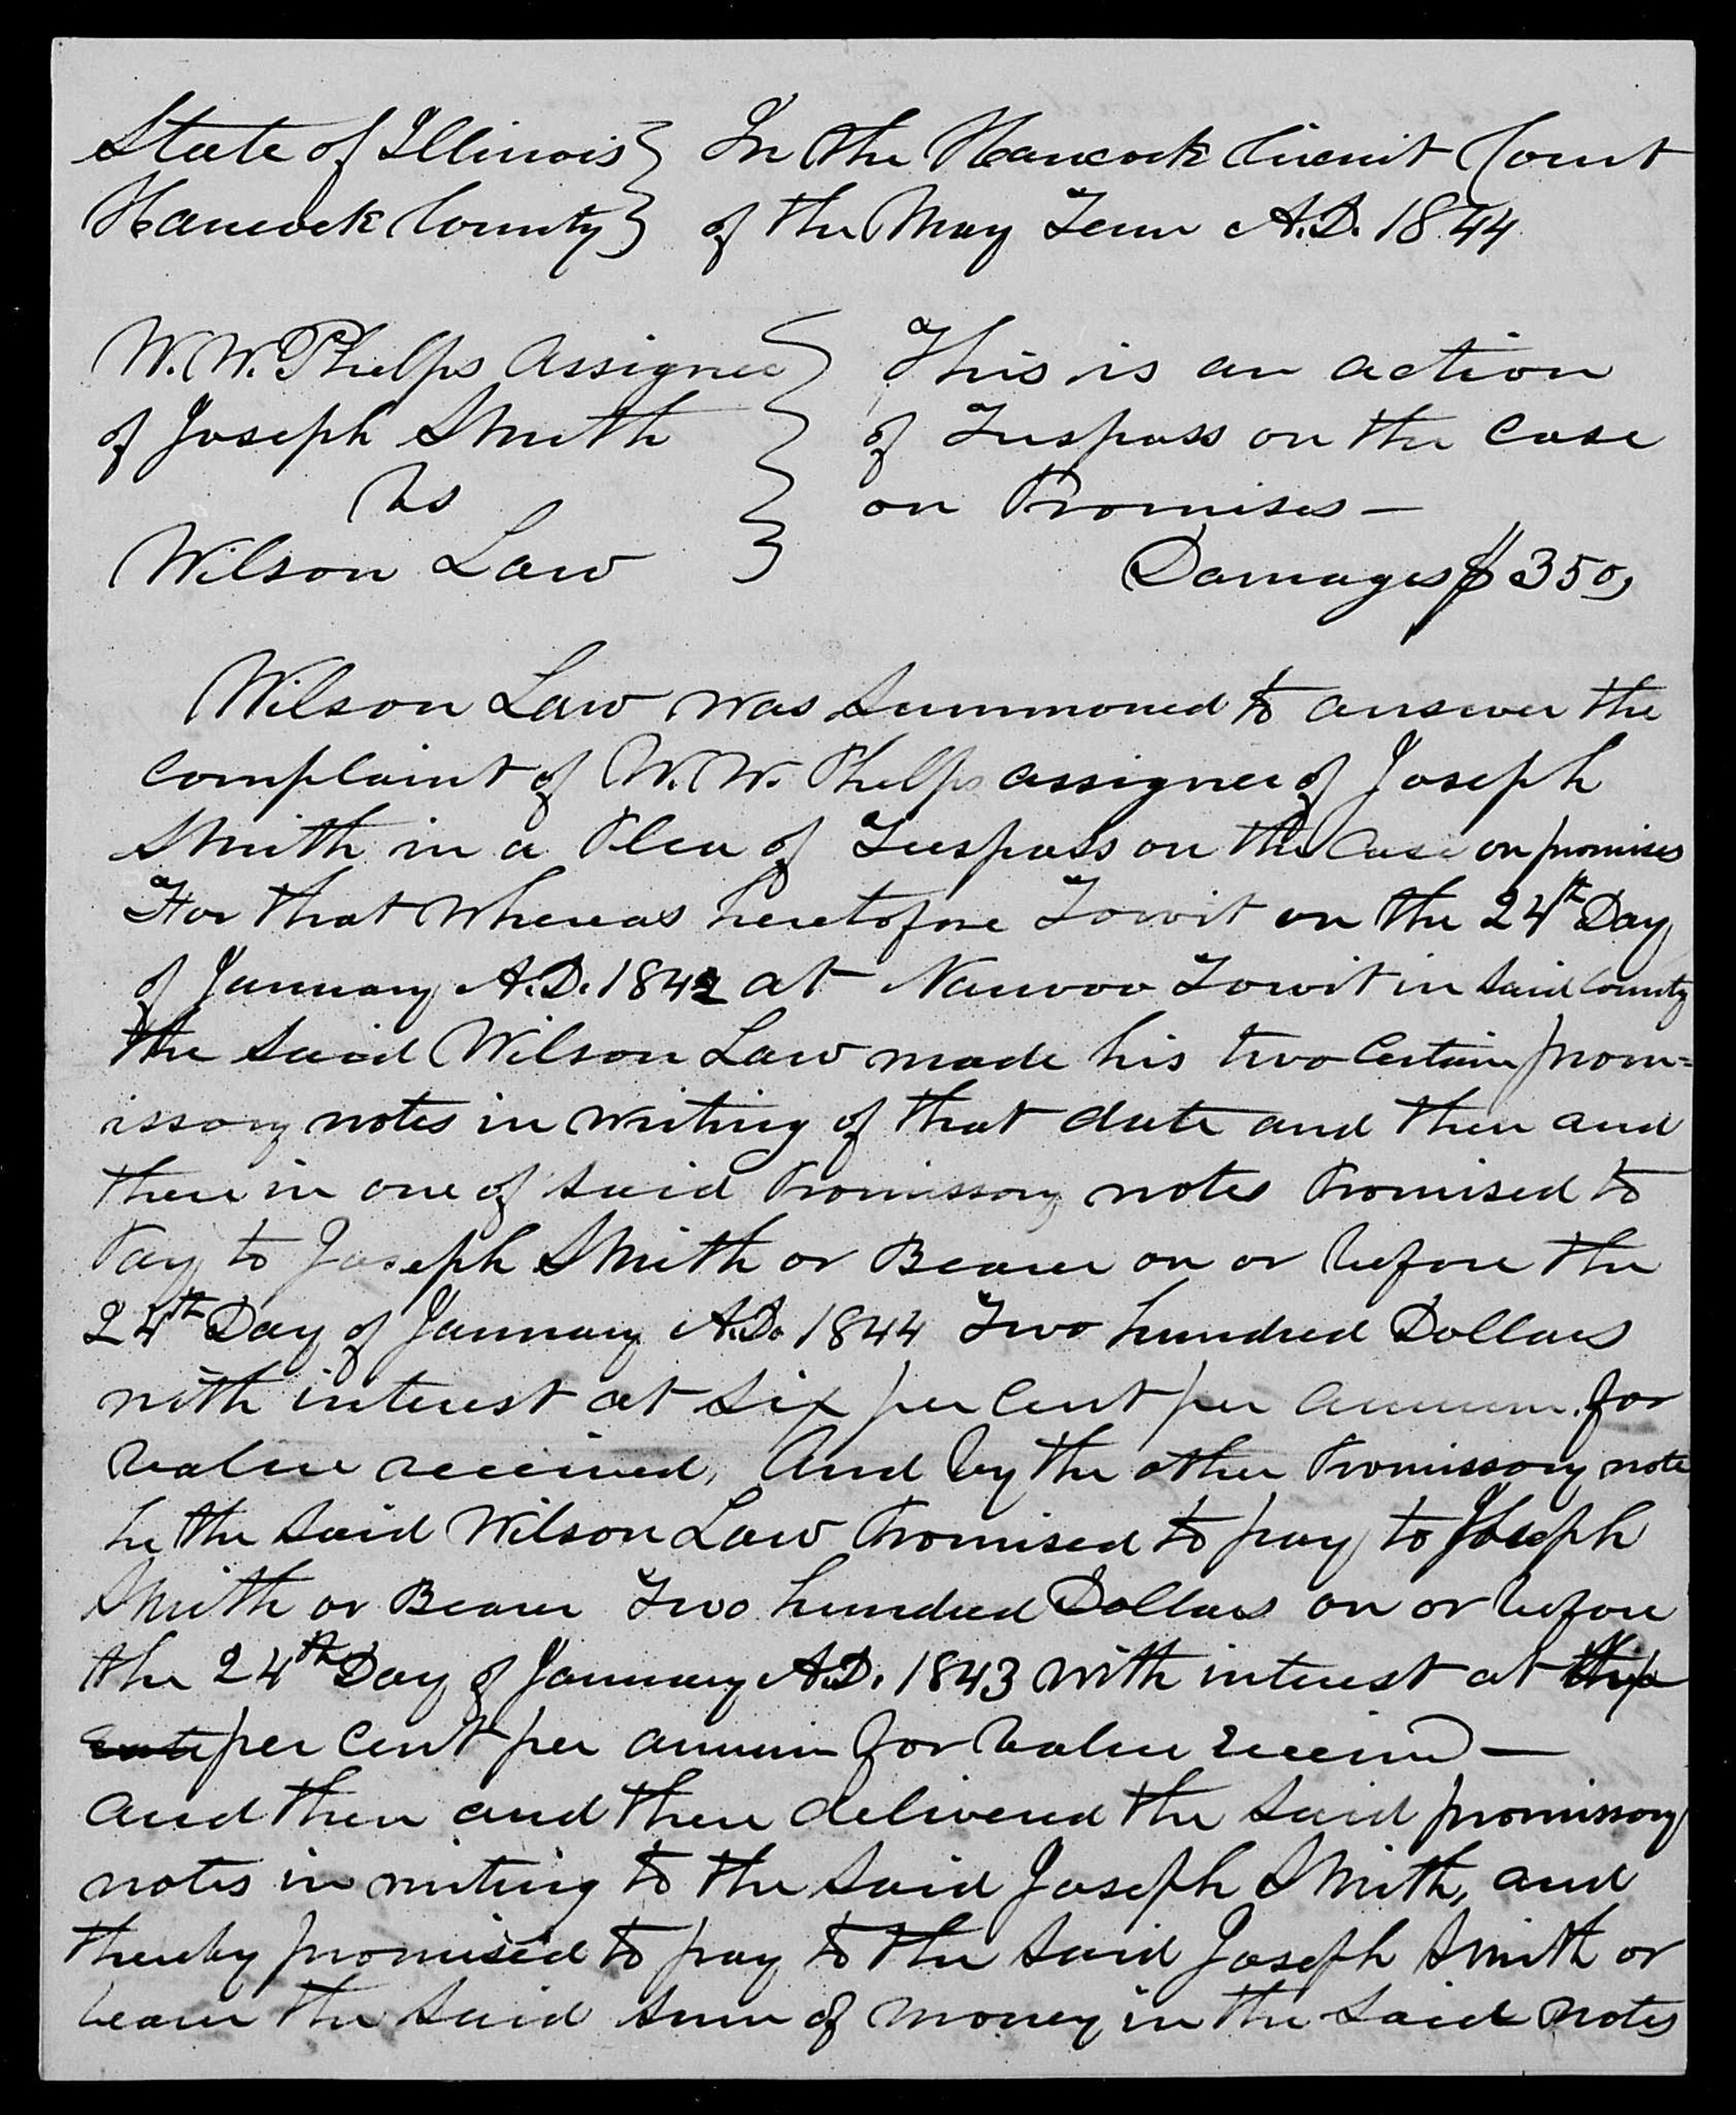 State of Illinois } In the Hancock Circuit Court
Hancock County } of the May Term A.D. 1844
W. W. Phelps Assignee } This is an action
of Joseph Smith } of Trespass on the case
vs } on Promises —
Wilson Law } Damages $350,
Wilson Law was summoned to answer the
complaint of W. W. Phelps assignee of Joseph
Smith in a Plea of Trespass on the Case on promises
For that whereas heretofore Towit on the 24th Day
of January A.D. 1842 at Nauvoo Towit in said County
the said Wilson Law made his two Certain prom=
issory notes in writing of that date and then and
there in one of said Promissory notes Promised to
Pay to Joseph Smith or Bearer on or before the
24th Day of January A.D. 1844 Two hundred Dollars
with interest at six per Cent per annum. for
value received, And by the other Promissory note
he the said Wilson Law Promised to pay to Joseph
Smith or Bearer Two hundred Dollars on or before
the 24th Day of January A.D. 1843 with interest at six
per Cent per annum for value received —
and then and there delivered the said promissory
notes in writing to the said Joseph Smith, and
thereby promised to pay to the said Joseph Smith or
bearer the said sum of money in the said notes